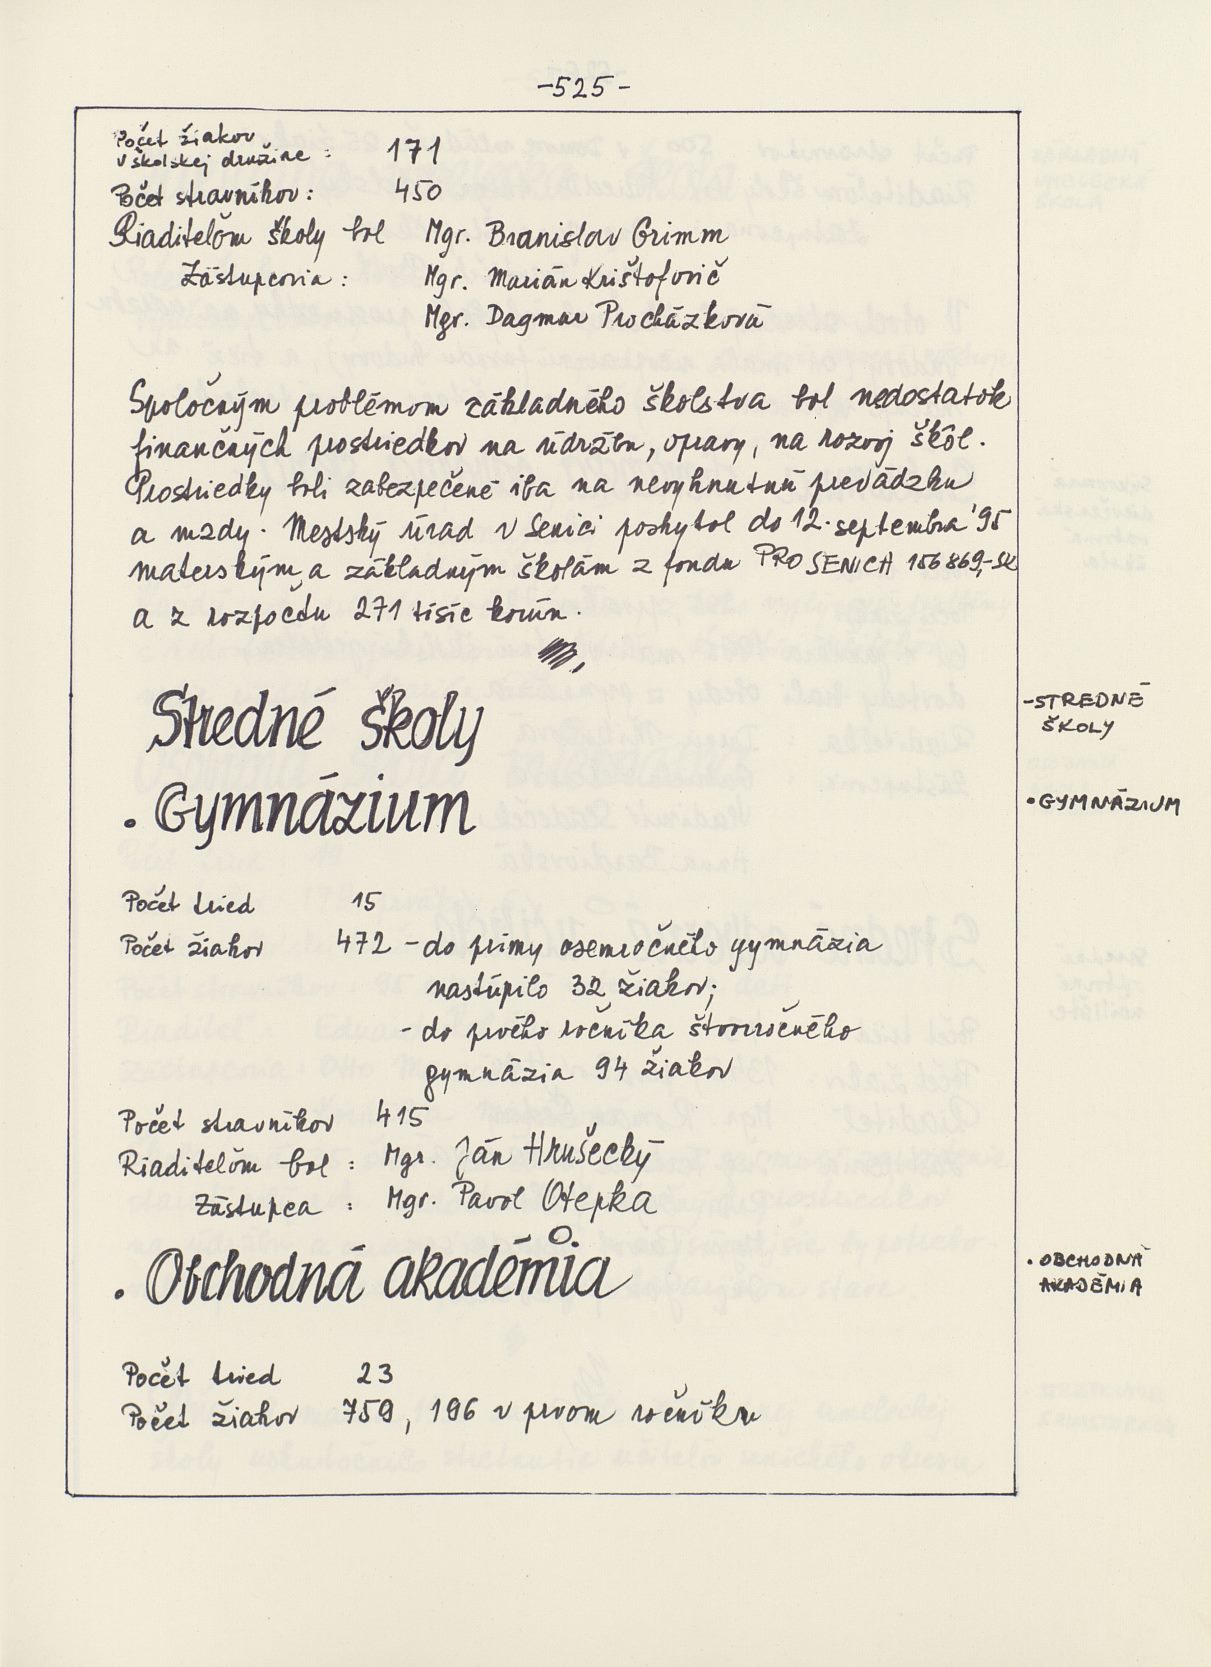 -525-
Počet žiakov
v školskej družine : 171
Počet stravníkov : 450
Riaditeľom školy bol Mgr. Branislav Grimm
Zástupcovia : Mgr. Marián Krištofovič
Mgr. Dagmar Procházková
Spoločným problémom základného školstva bol nedostatok
finančných prostriedkov na údržbu, opravy, na rozvoj škôl.
Prostriedky boli zabezpečené iba na nevyhnutnú prevádzku
a mzdy. Mestský úrad v Senici poskytol do 12. septembra '95
materským a základným školám z fondu PRO SENICA 156 869,- Sk
a z rozpočtu 271 tisíc korún.
Stredné školy
-STREDNÉ
ŠKOLY
. Gymnázium
• GYMNÁZIUM
Počet tried 15
Počet žiakov 472 - do prímy osemročného gymnázia
nastúpilo 32 žiakov;
- do prvého ročníka štvorročného
gymnázia 94 žiakov
Počet stravníkov 415
Riaditeľom bol : Mgr. Ján Hrušecký
Zástupca : Mgr. Pavol Otepka
. Obchodná akadémia
• OBCHODNÁ
AKADÉMIA
Počet tried 23
Počet žiakov 759, 196 v prvom ročníku